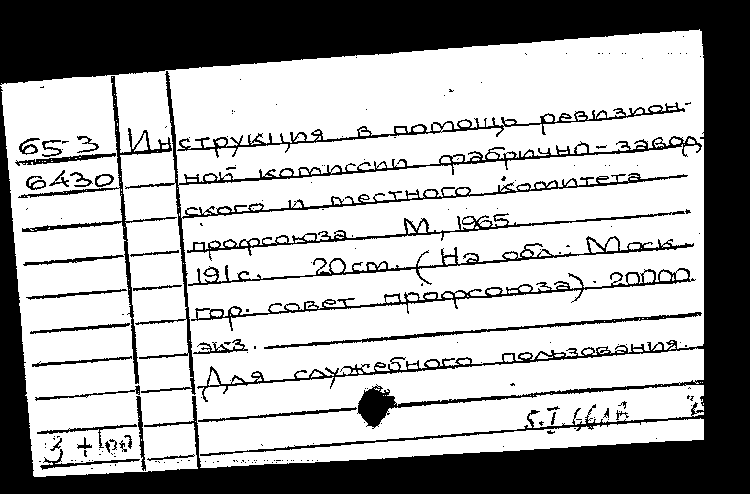 65-3 Инструкция в помощь ревизион-
6430 ной комиссии фабрично-завод-
ского и местного комитета
профсоюза. М., 1965.
191с. 20см. (На обл.: Моск.
гор. совет профсоюза). 20000
экз.
Для служебного пользования.
3 +100